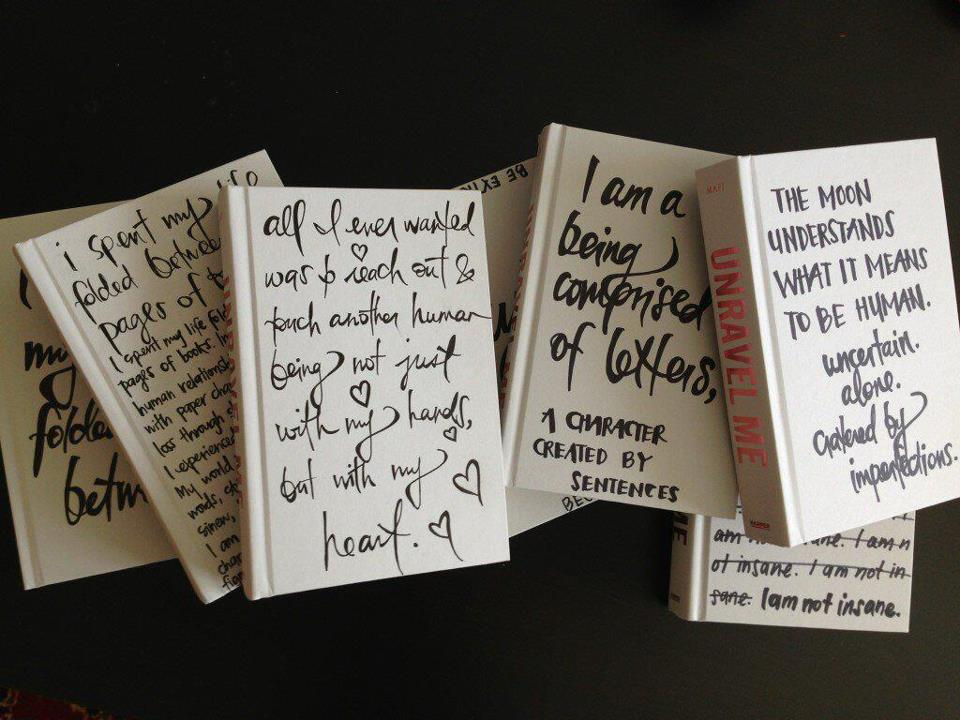 my
folde
betw
i spent my life
folded betwee
pages of t
I spent my life fol
pages of books. In
human relationsh
with paper cha
loss through
I experience
My world
words,
sinew,
I am
cha
all I ever wanted
was to reach out &
touch another human
being not just
with my hands,
but with my
heart.
BE EX
I am a
being
comprised
of letters,
A CHARACTER
CREATED BY
SENTENCES
MAFI
UNRAVEL ME
HARPER
THE MOON
UNDERSTANDS
WHAT IT MEANS
TO BE HUMAN.
uncertain.
alone.
cratered by
imperfections.
ME
am ane. I am n
ot insane. I am not in
sane. I am not insane.